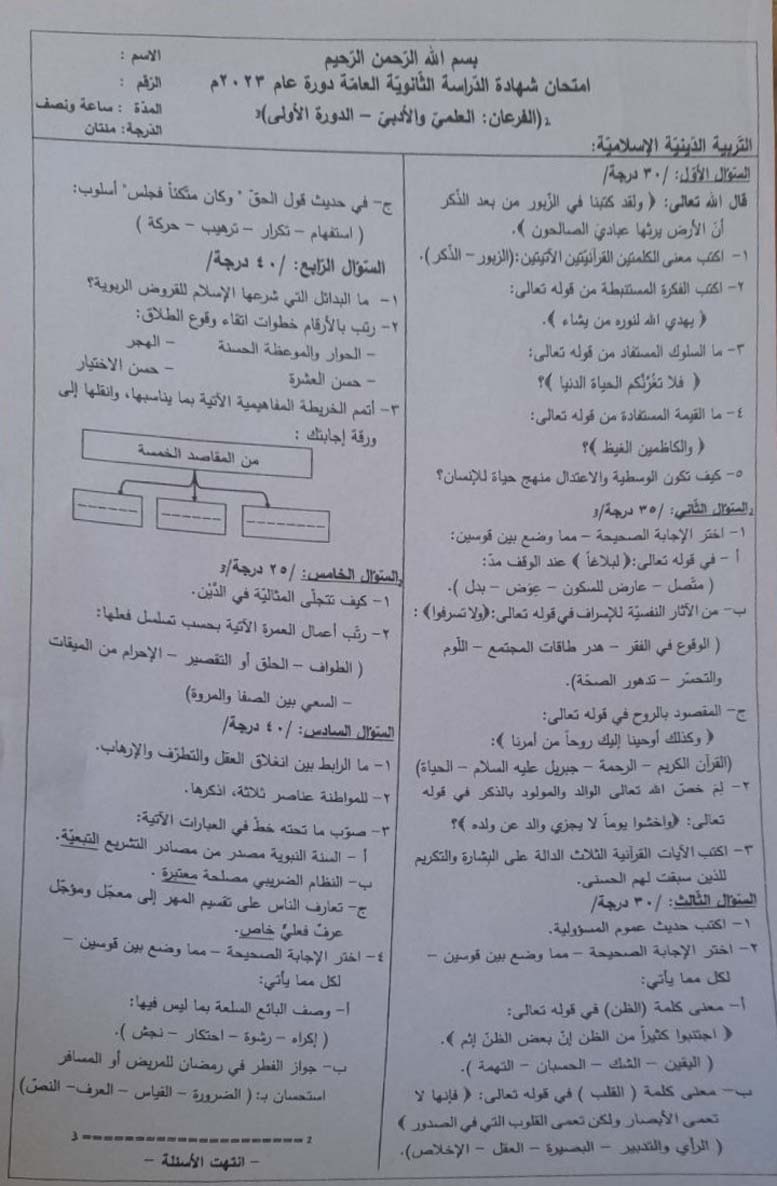 بسم الله الرّحمن الرّحيم
امتحان شهادة الدّراسة الثّانويّة العامّة دورة عام ٢٠٢٣م
(الفرعان: العلميّ والأدبيّ – الدورة الأولى)
الاسم :
الرّقم :
المدّة : ساعة ونصف
الدّرجة: مئتان
التّربية الدّينيّة الإسلاميّة:
السّؤال الأوّل: /٣٠ درجة/
قال الله تعالى: ﴿ ولقد كتبنا في الزّبور من بعد الذّكر
أنّ الأرض يرثها عباديَ الصالحون ﴾.
١- اكتب معنى الكلمتين القرآنيّتين الآتيتين:(الزبور – الذّكر).
٢- اكتب الفكرة المستنبطة من قوله تعالى:
﴿ يهدي الله لنوره من يشاء ﴾.
٣- ما السلوك المستفاد من قوله تعالى:
﴿ فلا تغُرّنّكم الحياة الدنيا ﴾؟
٤- ما القيمة المستفادة من قوله تعالى:
﴿ والكاظمين الغيظ ﴾؟
٥- كيف تكون الوسطية والاعتدال منهج حياة للإنسان؟
السّؤال الثّاني: /٣٥ درجة/
١- اختر الإجابة الصحيحة – مما وضع بين قوسين:
أ – في قوله تعالى:﴿ لبلاغاً ﴾ عند الوقف مدّ:
( متّصل – عارض للسكون – عِوَض – بدل ).
ب– من الآثار النفسيّة للإسراف في قوله تعالى:﴿ولا تسرفوا﴾ :
( الوقوع في الفقر – هدر طاقات المجتمع – اللّوم
والتحسّر – تدهور الصحّة).
ج– المقصود بالروح في قوله تعالى:
﴿ وكذلك أوحينا إليك روحاً من أمرنا ﴾:
(القرآن الكريم – الرحمة – جبريل عليه السلام – الحياة)
٢- لِمَ خصّ الله تعالى الوالد والمولود بالذّكر في قوله
تعالى: ﴿واخشوا يوماً لا يجزي والد عن ولده ﴾؟
٣- اكتب الآيات القرآنية الثلاث الدالة على البشارة والتكريم
للذين سبقت لهم الحسنى.
السّؤال الثّالث: /٣٠ درجة/
١- اكتب حديث عموم المسؤولية.
٢- اختر الإجابة الصحيحة – مما وضع بين قوسين –
لكل مما يأتي:
أ- معنى كلمة (الظن) في قوله تعالى:
﴿ اجتنبوا كثيراً من الظن إنّ بعض الظنّ إثم ﴾.
( اليقين – الشك – الحسبان – التهمة ).
ب– معنى كلمة ( القلب ) في قوله تعالى: ﴿ فإنها لا
تعمى الأبصار ولكن تعمى القلوب التي في الصدور ﴾
( الرأي والتدبير – البصيرة – العقل – الإخلاص).
ج– في حديث قول الحقّ " وكان متّكئاً فجلس" أسلوب:
( استفهام – تكرار – ترهيب – حركة )
السّؤال الرّابع: /٤٠ درجة/
١- ما البدائل التي شرعها الإسلام للقروض الربوية؟
٢- رتب بالأرقام خطوات اتقاء وقوع الطلاق:
– الحوار والموعظة الحسنة – الهجر
– حسن العشرة – حسن الاختيار
٣- أتمم الخريطة المفاهيمية الآتية بما يناسبها، وانقلها إلى
ورقة إجابتك :
من المقاصد الخمسة
السّؤال الخامس: /٢٥ درجة/
١- كيف تتجلّى المثاليّة في الدَّيْن.
٢- رتّب أعمال العمرة الآتية بحسب تسلسل فعلها:
( الطواف – الحلق أو التقصير – الإحرام من الميقات
– السعي بين الصفا والمروة)
السّؤال السادس: /٤٠ درجة/
١- ما الرابط بين انغلاق العقل والتطرّف والإرهاب.
٢- للمواطنة عناصر ثلاثة، اذكرها.
٣- صوّب ما تحته خطّ في العبارات الآتية:
أ – السنة النبوية مصدر من مصادر التشريع التبعيّة.
ب– النظام الضريبي مصلحة معتبرة .
ج– تعارف الناس على تقسيم المهر إلى معجّل ومؤجّل
عرفٌ فعليٌّ خاص.
٤- اختر الإجابة الصحيحة – مما وضع بين قوسين –
لكل مما يأتي:
أ- وصف البائع السلعة بما ليس فيها:
( إكراه – رشوة – احتكار – نجش ).
ب– جواز الفطر في رمضان للمريض أو المسافر
استحسان بـ: ( الضرورة – القياس – العرف– النصّ)
– انتهت الأسئلة –